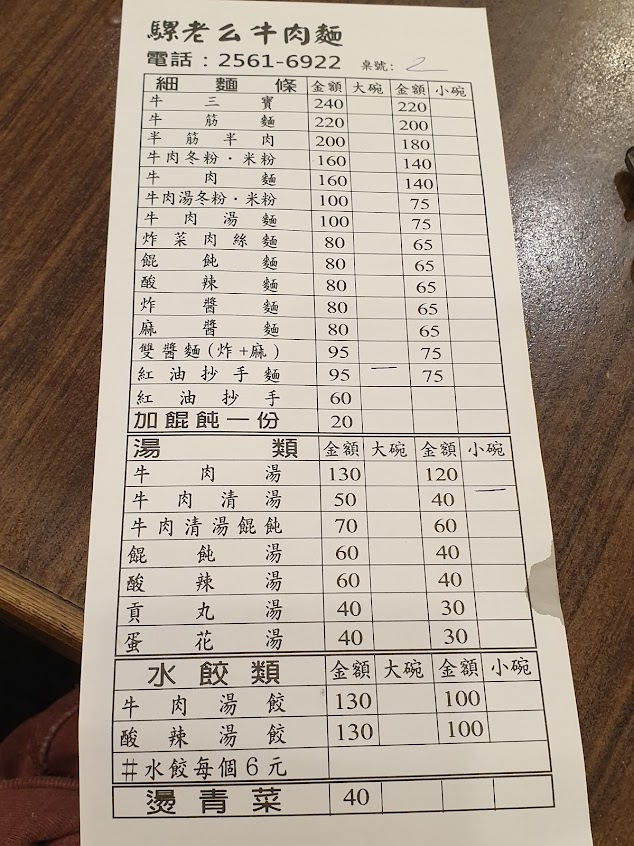 騾老么牛肉麵
電話：2561-6922 桌號：2
細麵條 金額 大碗 金額 小碗
牛三寶 240 220
牛筋麵 220 200
半筋半肉 200 180
牛肉冬粉·米粉 160 140
牛肉麵 160 140
牛肉湯冬粉·米粉 100 75
牛肉湯麵 100 75
炸菜肉絲麵 80 65
餛飩麵 80 65
酸辣麵 80 65
炸醬麵 80 65
麻醬麵 80 65
雙醬麵(炸+麻) 95 75
紅油抄手麵 95 一 75
紅油抄手 60
加餛飩一份 20
湯類 金額 大碗 金額 小碗
牛肉湯 130 120
牛肉清湯 50 40 一
牛肉清湯餛飩 70 60
餛飩湯 60 40
酸辣湯 60 40
貢丸湯 40 30
蛋花湯 40 30
水餃類 金額 大碗 金額 小碗
牛肉湯餃 130 100
酸辣湯餃 130 100
#水餃每個6元
燙青菜 40